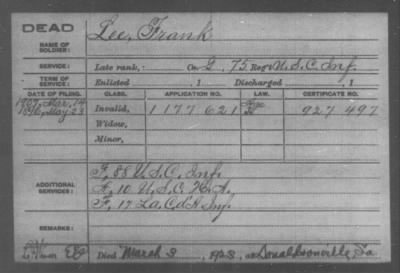 DEAD
NAME OF SOLDIER: Lee, Frank
SERVICE: Late rank, - Co. G, 75 Reg't U.S.C. Inf.
TERM OF SERVICE: Enlisted , 1 Discharged , 1
DATE OF FILING. CLASS. APPLICATION NO. LAW. CERTIFICATE NO.
1907, Mar. 14
1896, May 23 Invalid, 1 177 621 927 497
Widow,
Minor,
ADDITIONAL SERVICES:
F, 88 U.S.C. Inf.
F, 10 U.S.C.H.A.
F, 17 La. Cd. Inf.
REMARKS:
Died March 3, 1923, at Donaldsonville, La